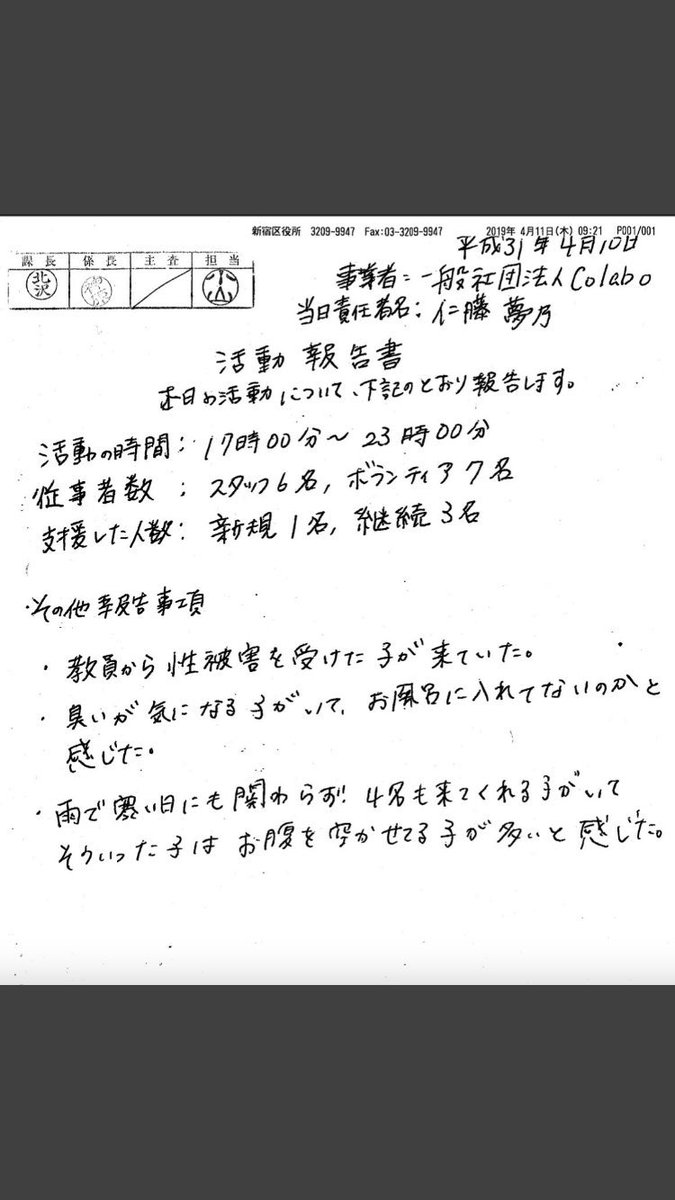 新宿区役所 3209-9947 Fax:03-3209-9947 2019年 4月11日(木) 09:21 P001/001
平成31年4月10日
課長 係長 主査 担当
北沢
事業者：一般社団法人Colabo
当日責任者名：仁藤 夢乃
活動報告書
本日の活動について、下記のとおり報告します。
活動の時間：17時00分～23時00分
従事者数：スタッフ6名，ボランティア7名
支援した人数：新規1名，継続3名
・その他報告事項
・教員から性被害を受けた子が来ていた。
・臭いが気になる子がいて、お風呂に入れてないのかと
感じた。
・雨で寒い日にも関わらず！4名も来てくれる子がいて
そういった子はお腹を空かせてる子が多いと感じた。